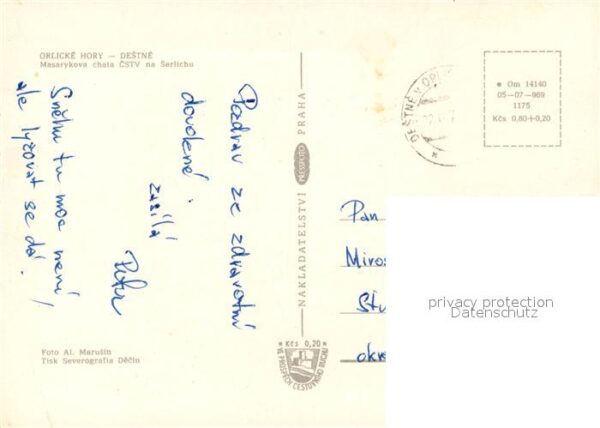 ORLICKÉ HORY — DEŠTNÉ
Masarykova chata ČSTV na Šerlichu
Pozdrav ze zdravotní
dovolené
zasílá
Petr
Sněhu tu moc není,
ale lyžovat se dá.
Foto Al. Marušin
Tisk Severografia Děčín
NAKLADATELSTVÍ PRESSFOTO PRAHA
* Kčs 0,20 *
VE PROSPĚCH CESTOVNÍHO RUCHU
DEŠTNÉ V ORL
* Om 14140
05-07-969
1175
Kčs 0,60+0,20
Pan
Miros
Stu
okr
privacy protection
Datenschutz